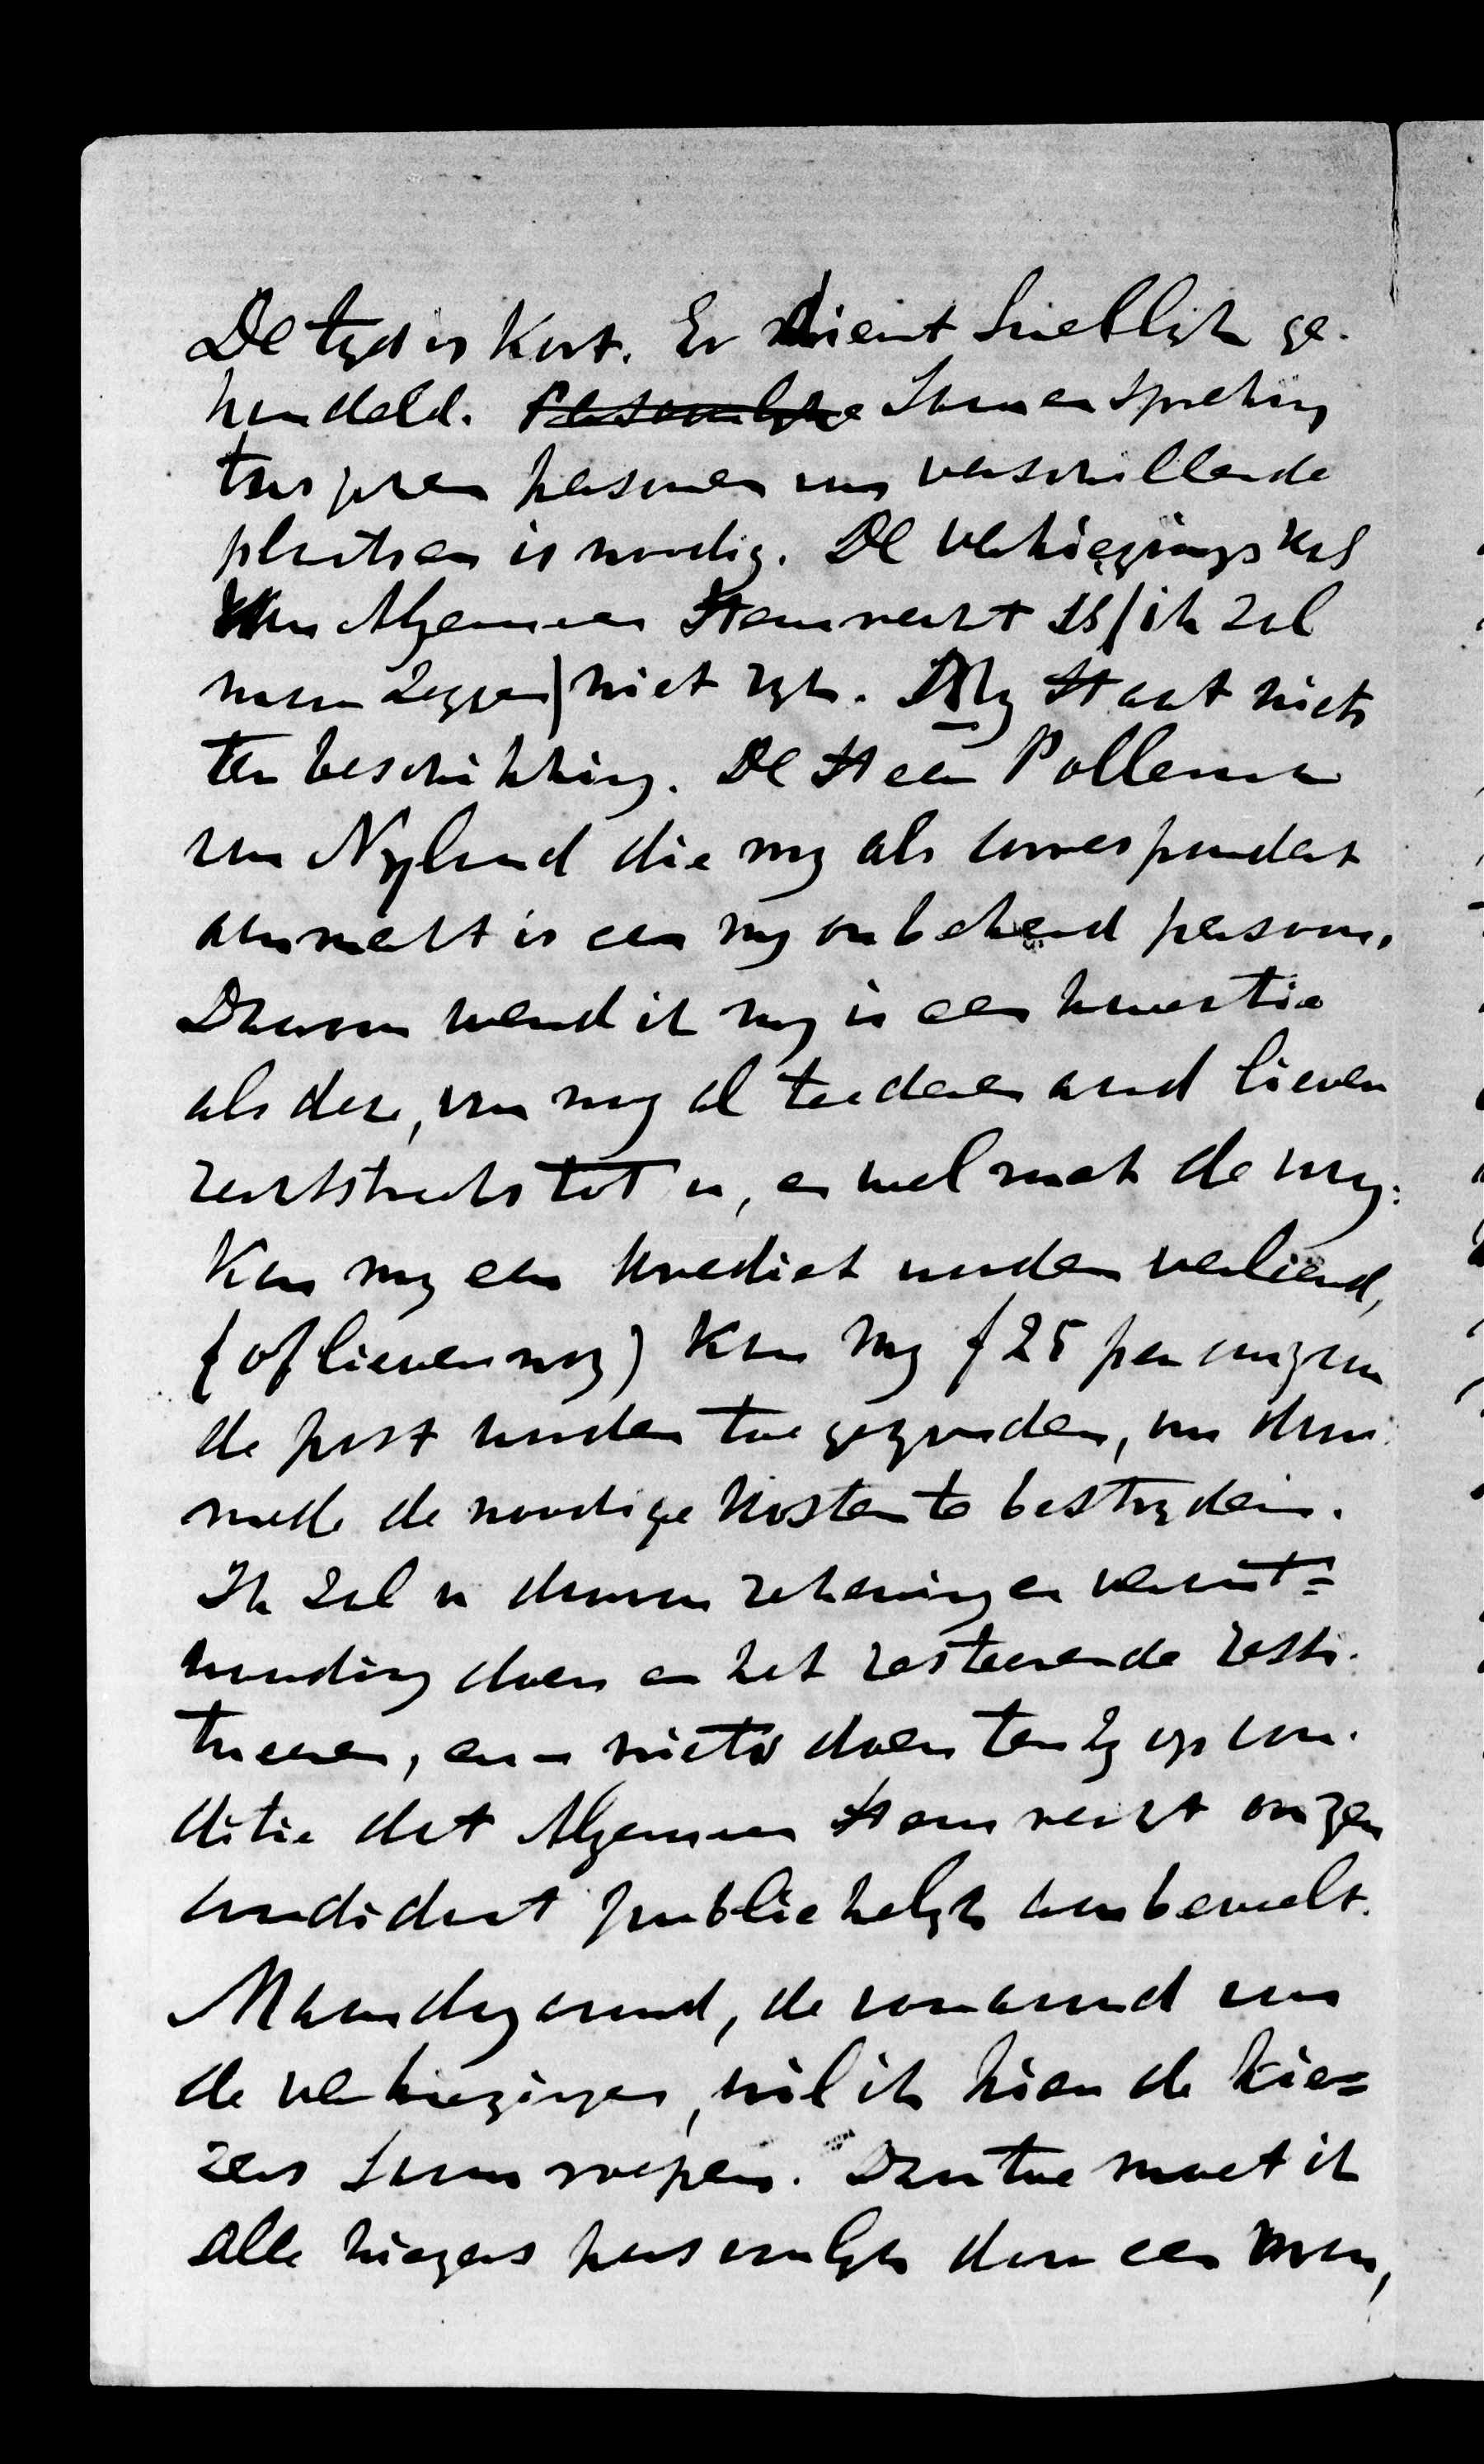 De tyd is kort. Er dient snellyk ge-
handeld. Persoonlyke Samenspreking
tusschen personen van verschillende
plaatsen is noodig. De verkiezingskas
van Algemeen Stemrecht is (ik zal
maar zeggen) niet ryk. My staat niets
ter beschikking. De Heer Pollema
van Nyland die my als correspondent
aanmerkt is een my onbekend persoon.
Daarom wend ik my in een kwestie
als deze, van nog al teederen aard liever
rechtstreeks tot u, en wel met de vraag:
Kan my een krediet worden verleend,
(of liever nog) kan my f 25 per omgaan
de post worden toegezonden, om daar
mede de noodige kosten te bestryden.
Ik zal u daarvan rekening en verant=
woording doen en het resteerende resti-
tueeren, en niets doen tenzy op con-
ditie dat Algemeen Stemrecht onzen
candidaat publiekelyk aanbeveelt.
Maandag avond, de vooravond van
de verkiezingen, wil ik hier de kie=
zers samenroepen. Daartoe moet ik
alle kiezers persoonlyk door een man,